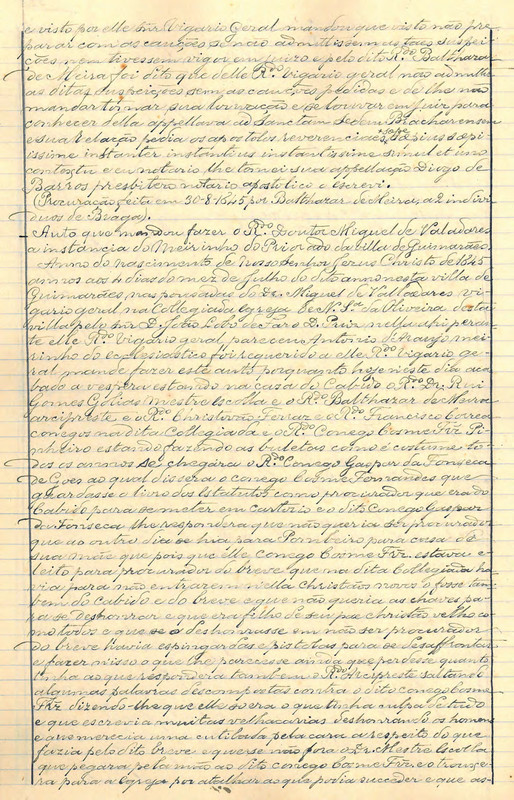 e visto por elle snr Vigario Geral mandou que visto não pre
parar com as cauções se não admittissem as taes suspei
ções nem tivessem vigor em juizo e pelo dito R.do Balthazar
de Meira foi dito que delle R.do vigario geral não admittir
as ditas suspeições sem as cauções pedidas e de lhe não
mandar tomar sua louvação e se louvar em juiz para
conhecer della appellava ad Sanctam sedem Bracharensem
e sua Relação pedia os apostolos reverenciaes sepe sepius sepi
issime instanter instantius instantissime simul et uno
contextu e eu notario lhe tomei sua appellação Diogo de
Barros presbitero notario apostolico o escrevi.
(Procuração feita em 30-8-1645 por Balthazar de Meira, a 2 indivi
duos de Braga).
Auto que mandou fazer o R.do Doutor Miguel de Valladares
a instancia do Meirinho do Priorado da villa de Guimarães.
Anno do nascimento de Nosso Senhor Jesus Christo de 1645
annos aos 4 dias do mez de Julho do dito anno nesta villa de
Guimarães nas pousadas do Dr. Miguel de Valladares vi
gario geral na Collegiada Igreja de N. S.ra da Oliveira desta
villa pelo snr D. João Lobo de Faro D. Prior nella ahi peran
te elle R.do Vigario geral pareceu Antonio de Araujo mei
rinho do ecclesiastico foi requerido a elle R.do Vigario ge
ral mande fazer este auto porquanto hoje neste dia aca
bado a vespera estando na casa do Cabido o R.do Dr. Rui
Gomes Golias Mestre Escolla e o R.do Balthazar de Meira
arcipreste e o R.do Christovão Ferraz e o R.do Francisco Correa
conegos na dita Collegiada e o R.do Conego Cosme Frz Pi
nheiro estando fazendo as buletas como é costume to
dos os annos se chegára o R.do Conego Gaspar da Fonseca
de Goes ao qual dissera o conego Cosme Fernandes que
guardasse o livro dos Estatutos como procurador que era do
Cabido para se meter em Cartorio e o dito Conego Gaspar
da Fonseca lhe respondera que não queria ser procurador
que ao outro dia se hia para Pombeiro para casa de
sua mãe que pois que elle conego Cosme Frz. estava e
leito para procurador do breve que na dita Collegiada ha
via para não entrarem nella christãos novos o fosse tam
bem do cabido e do breve e que não queria as chaves pa
ra se deshonrar e que era filho de seu pae christão velho co
mo todos e que se o deshonrasse em não ser procurador
do breve havia espingardas e pistolas para se desaffrontar
e fazer nisso o que lhe parecesse ainda que perdesse quanto
tinha ao que respondera tambem o R.do Arcipreste saltando
algumas palavras descompostas contra o dito conego Cosme
Frz dizendo-lhe que elle só era o que tinha culpa de tudo
e que escrevia muitas velhacarias deshonrando os homens
e que merecia uma cutilada pela cara a respeito do que
fazia pelo dito breve e que se não fora o Dr. Mestre Escolla
que pegara pela mão ao dito conego Cosme Frz e o trouxe
ra para a Igreja por atalhar ao que podia succeder e que as-